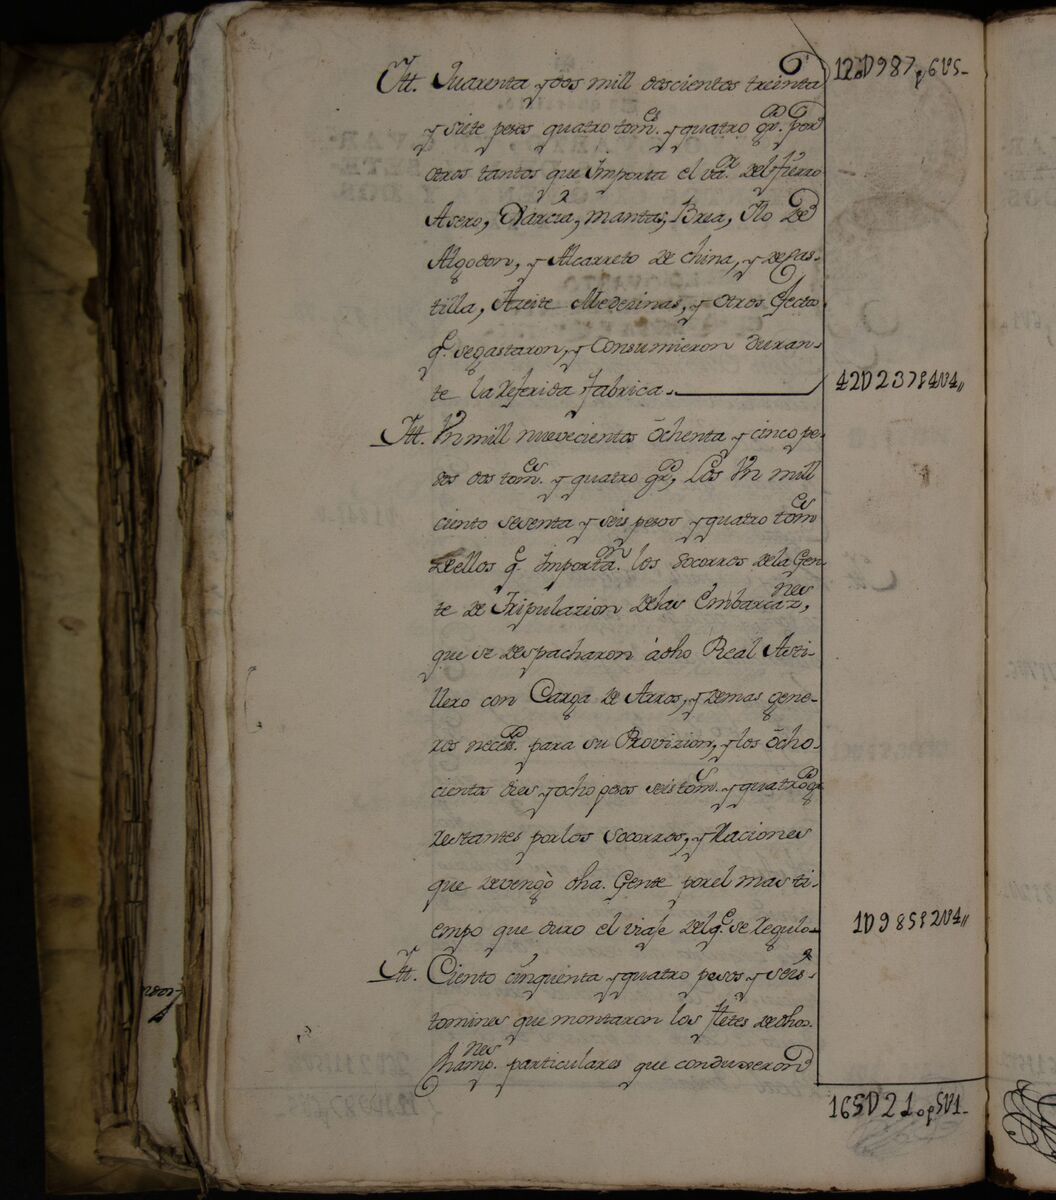 12D987p6V5-
Itt. Quarenta y dos mill doscientos treinta
y siete pesos quatro tom.es y quatro gr.s por
otros tantos que Importa el va.r del fierro
Asero, Xarcia, mantas, Brea, Ylo de
Algodon, y Alcarreto de china, y de Cas-
tilla, Azeite Medecinas, y otros efectos
q.e se gastaron, y Consumieron duran-
te la Referida fabrica. 42D237p4V4
Itt. Un mill nuevecientos óchenta y cinco pe-
sos dos tom.es y quatro gr.s, Los Un mill
ciento sesenta y seis pesos y quatro tom.es
de ellos q.e Importa.n los Socorros de la Gen-
te de Tripulazion de las Embarcaz.nes,
que se despacharon à dho Real Asti-
llero con Carga de Arros, y demas gene-
ros neces.s para su Provizion, y los ócho-
cientos dies y ocho pesos seis tom.s y quatro gr.s
Restantes por los Socorros, y Raciones
que devengò dha. Gente por el mas ti-
empo que duro el viaje del q.e se Regulo 1D985p2V4
Itt. Ciento cinquenta y quatro pesos y seis
tomines que montaron los fletes de dhos.
Champ.nes particulares que condugeron